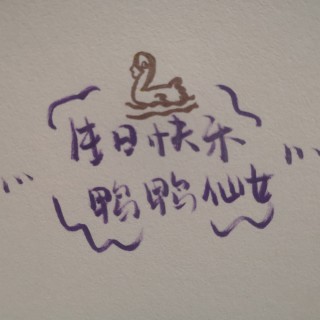 佳日快乐
鸭鸭仙女